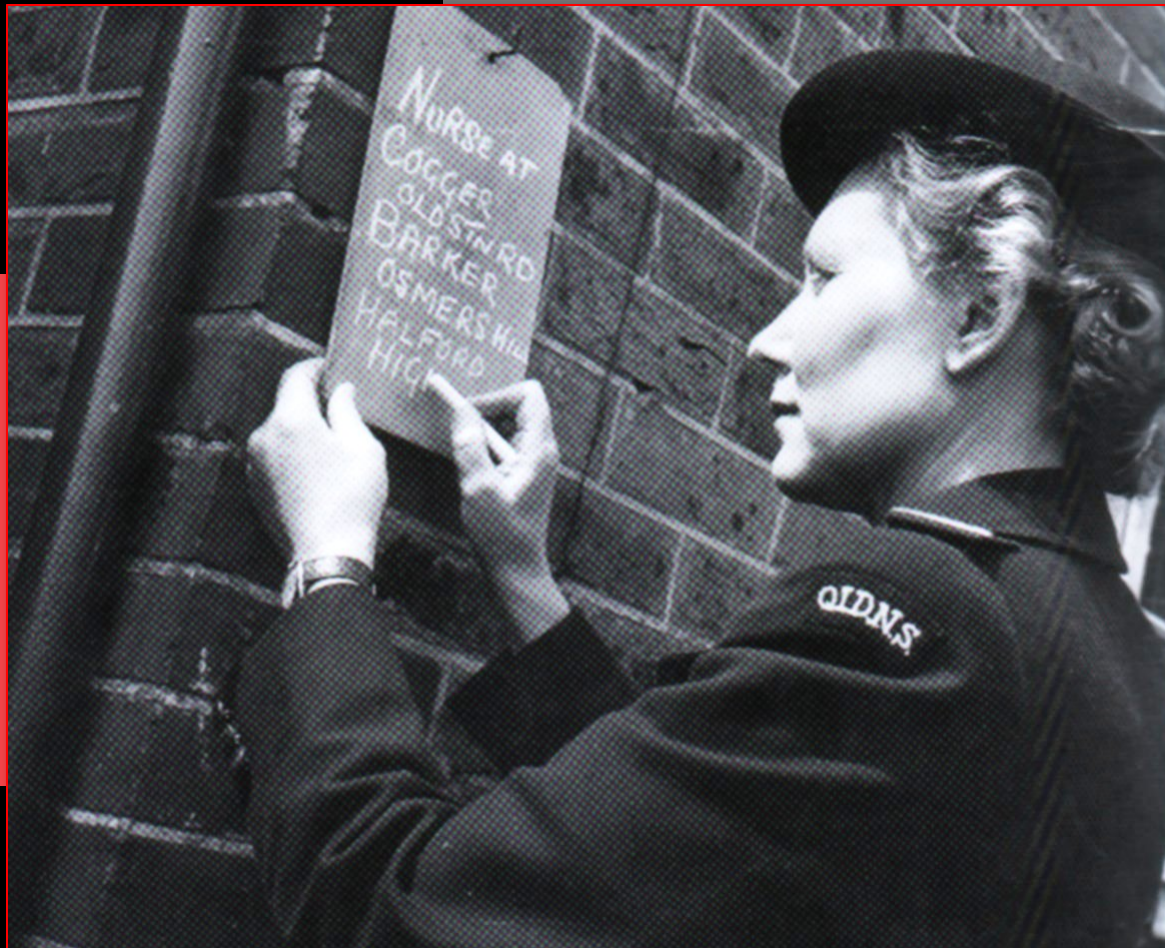 NURSe AT
COGGER
OLD STN RD
BARKER
OSMERS Hill
HALFORD
HIG
Q.I.D.N.S.